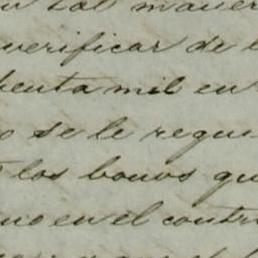 tal maner
verificar de l
enta mil en
o se le reque
los bonos qu
no en el contr